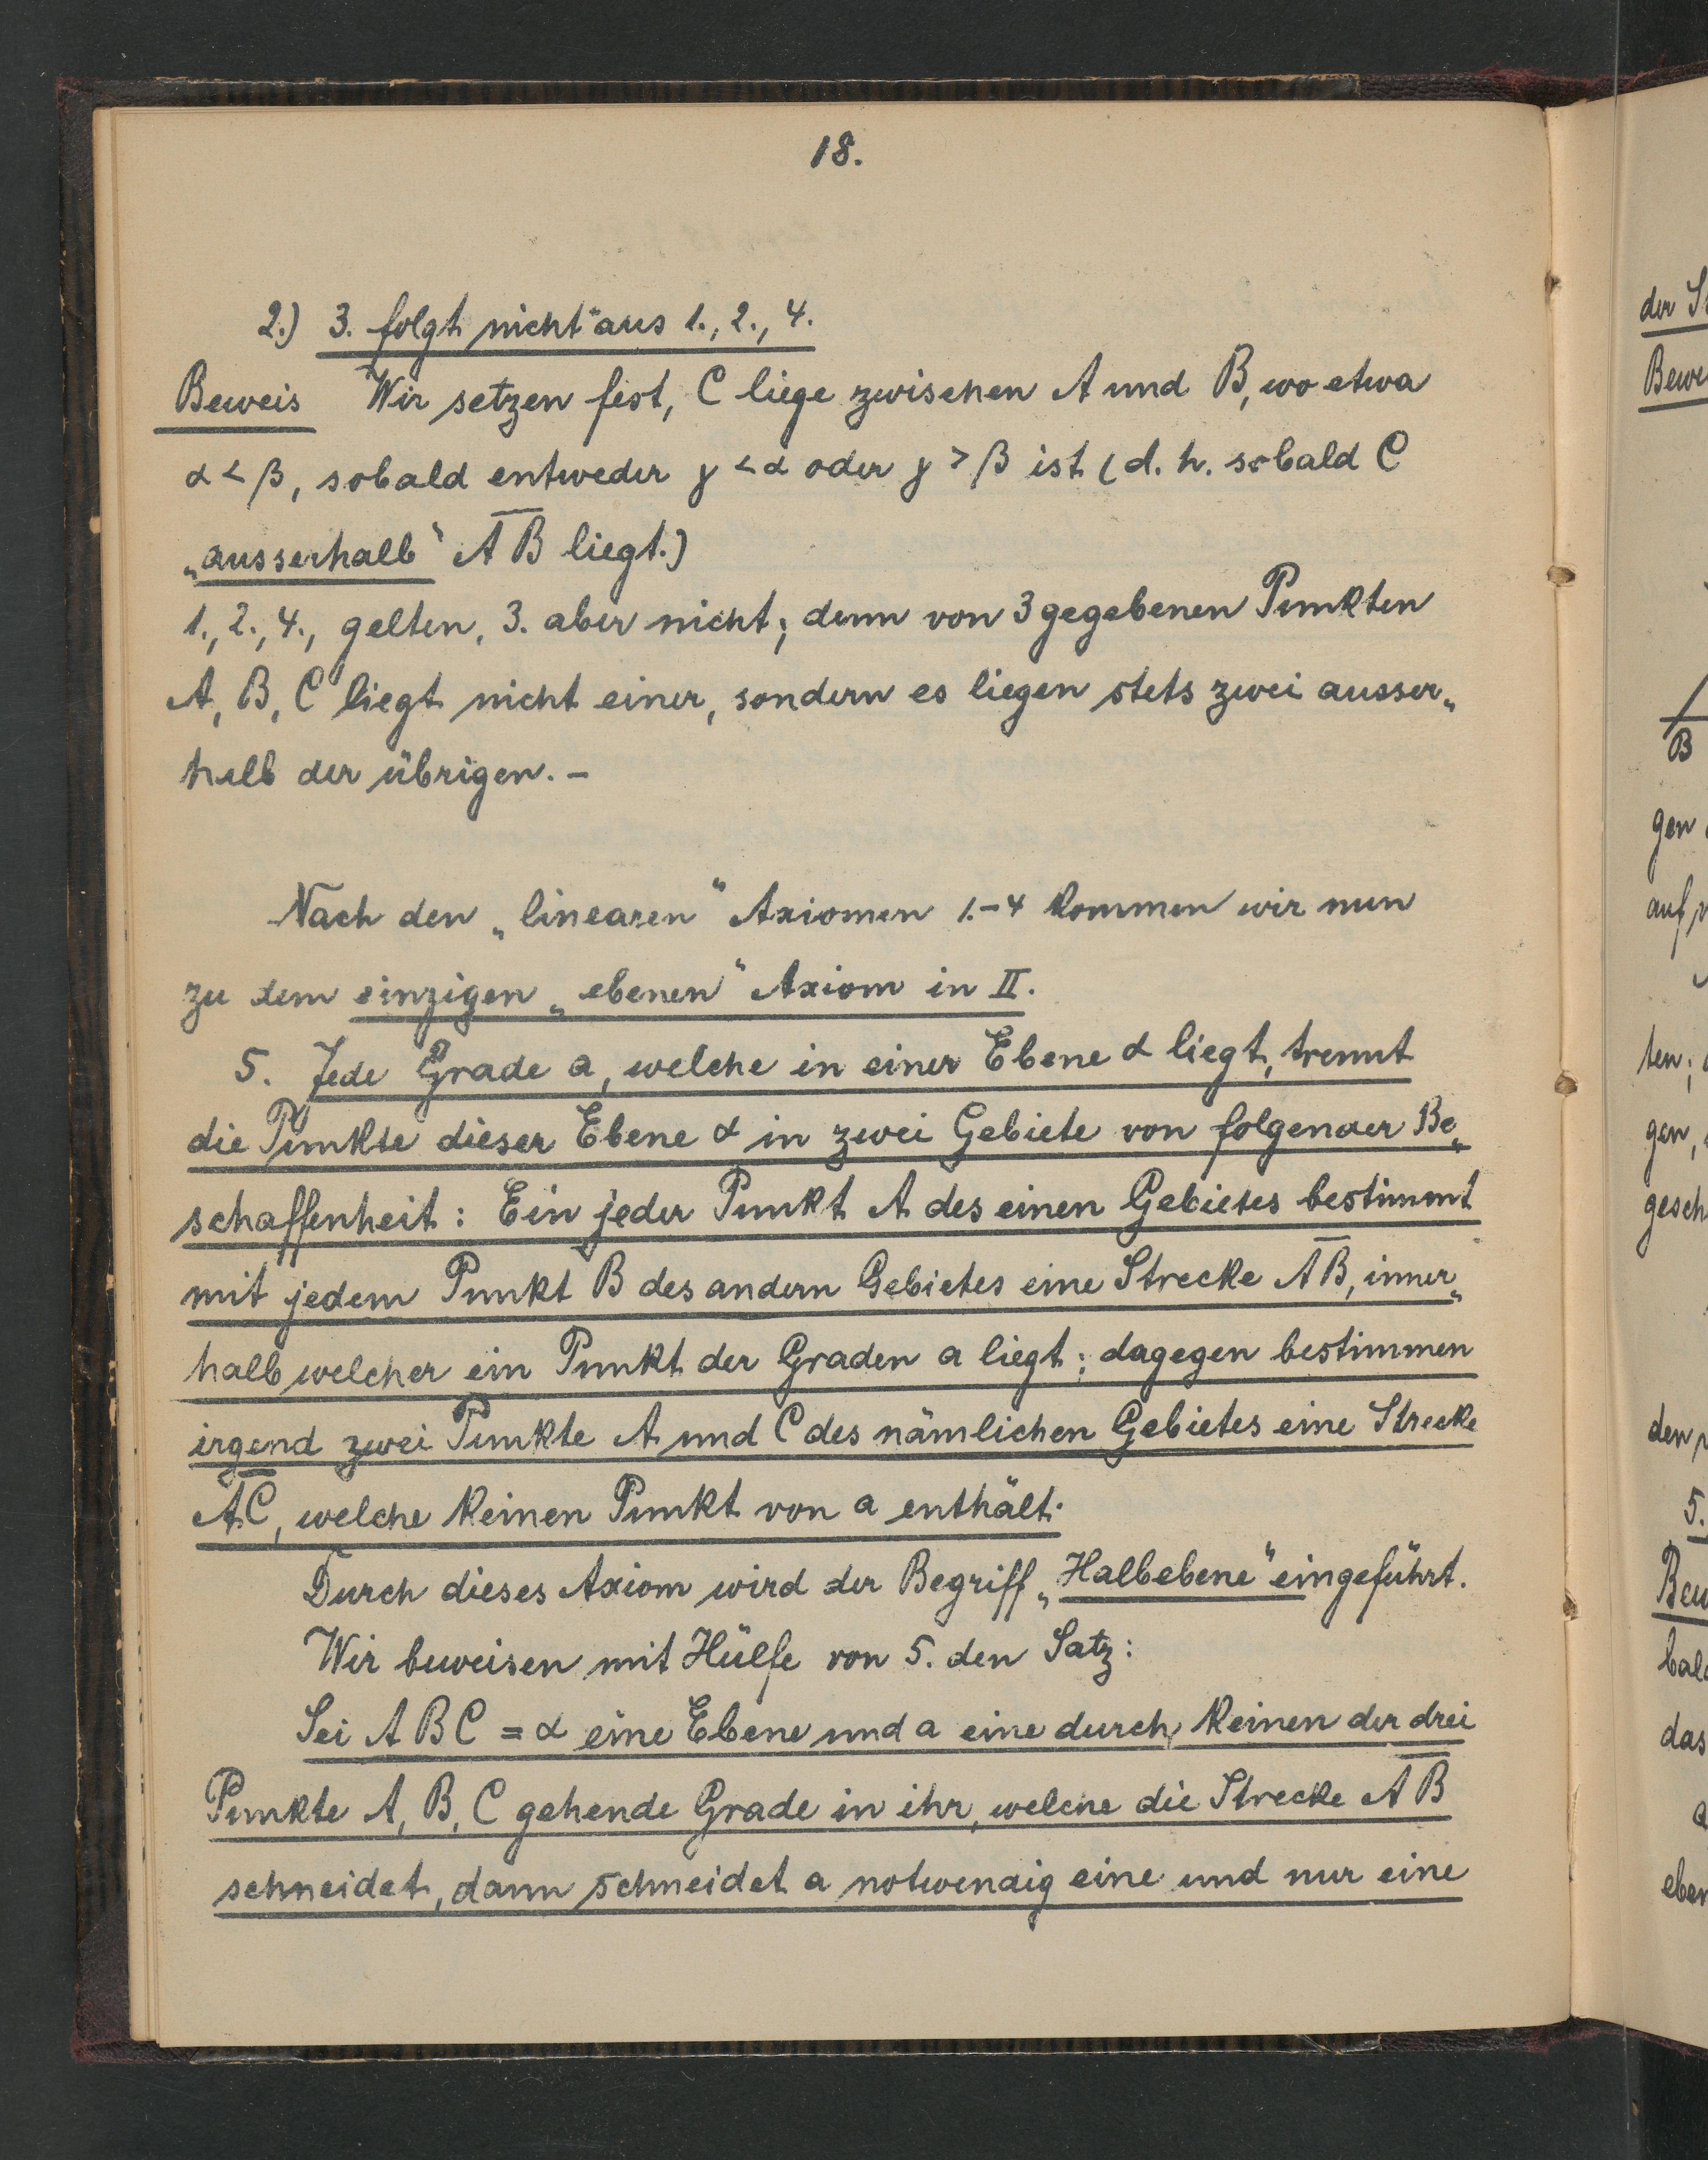 18.
2.) 3. folgt nicht aus 1., 2., 4.
Beweis Wir setzen fest, C liege zwischen A und B, wo etwa
α < β, sobald entweder γ < α oder γ > β ist (d. h. sobald C
„ausserhalb“ A̅B̅ liegt.)
1., 2., 4., gelten, 3. aber nicht; denn von 3 gegebenen Punkten
A, B, C liegt nicht einer, sondern es liegen stets zwei ausser„
halb der übrigen. –
Nach den „linearen“ Axiomen 1.–4 kommen wir nun
zu dem einzigen „ebenen“ Axiom in II.
5. Jede Grade a, welche in einer Ebene α liegt, trennt
die Punkte dieser Ebene α in zwei Gebiete von folgender Be„
schaffenheit: Ein jeder Punkt A des einen Gebietes bestimmt
mit jedem Punkt B des andern Gebietes eine Strecke A̅B̅, inner„
halb welcher ein Punkt der Graden a liegt; dagegen bestimmen
irgend zwei Punkte A und C des nämlichen Gebietes eine Strecke
A̅C̅, welche keinen Punkt von a enthält.
Durch dieses Axiom wird der Begriff „Halbebene“ eingeführt.
Wir beweisen mit Hülfe von 5. den Satz:
Sei A B C = α eine Ebene und a eine durch keinen der drei
Punkte A, B, C gehende Grade in ihr, welche die Strecke A̅B̅
schneidet, dann schneidet a notwendig eine und nur eine
der
B
gen
auf
ten;
gen,
gesch
den
5.
das
eben